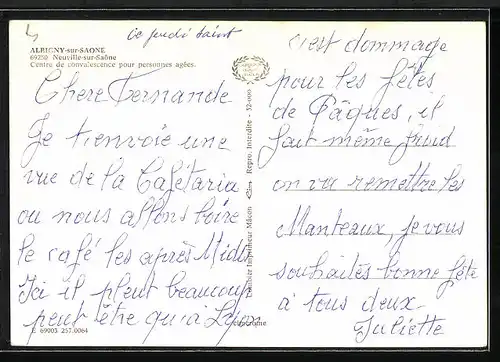 ce jeudi saint
ALBIGNY-sur-SAONE
69250 Neuville-sur-Saône
Centre de convalescence pour personnes agées.
Chere Fernande
Je t'envoie une
vue de la Cafétaria
ou nous allons boire
le café les après Midi
Ici il pleut beaucoup
peut être qu'a Lyon
E 69003 257.0064
Combier Imprimeur Mâcon
Repro. Interdite - 52-000
c'est dommage
pour les fêtes
de Pâques, il
fait même froid
on va remettre les
Manteaux, je vous
souhaites bonne fête
a tous deux
Juliette